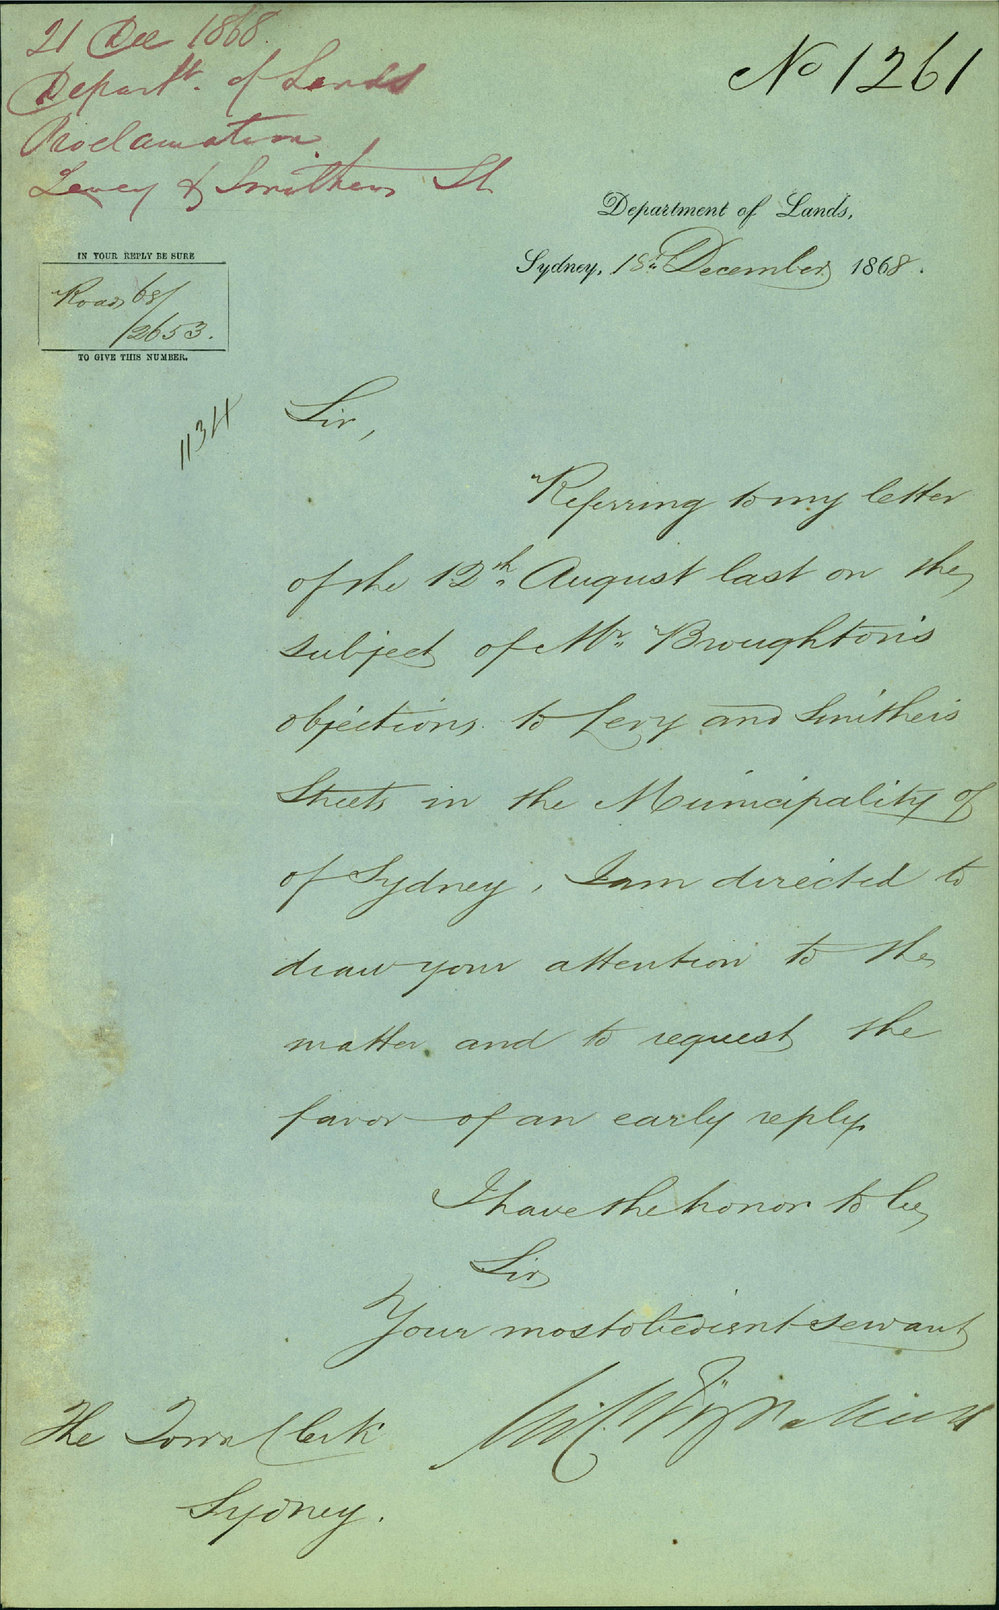 21 Dec 1868
Departt. of Lands
Proclamation
Levey & Smithers St
No 1261
Department of Lands,
Sydney, 18th December 1868.
IN YOUR REPLY BE SURE
Roads 68/
/2653.
TO GIVE THIS NUMBER.
1134
Sir,
Referring to my letter
of the 12th August last on the
subject of Mr. Broughton's
objections to Levy and Smither's
Streets in the Municipality of
of Sydney, I am directed to
draw your attention to the
matter and to request the
favor of an early reply.
I have the honor to be,
Sir
Your most obedient servant
The Town Clerk
Sydney.